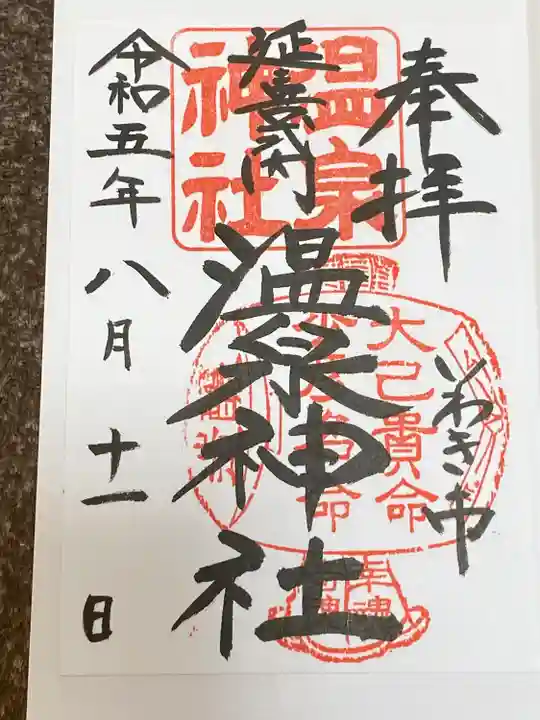 奉拝
いわき市
延喜式内
温泉神社
令和五年
八月十一日
温泉
神社
大己貴命
少彦名命
幸魂